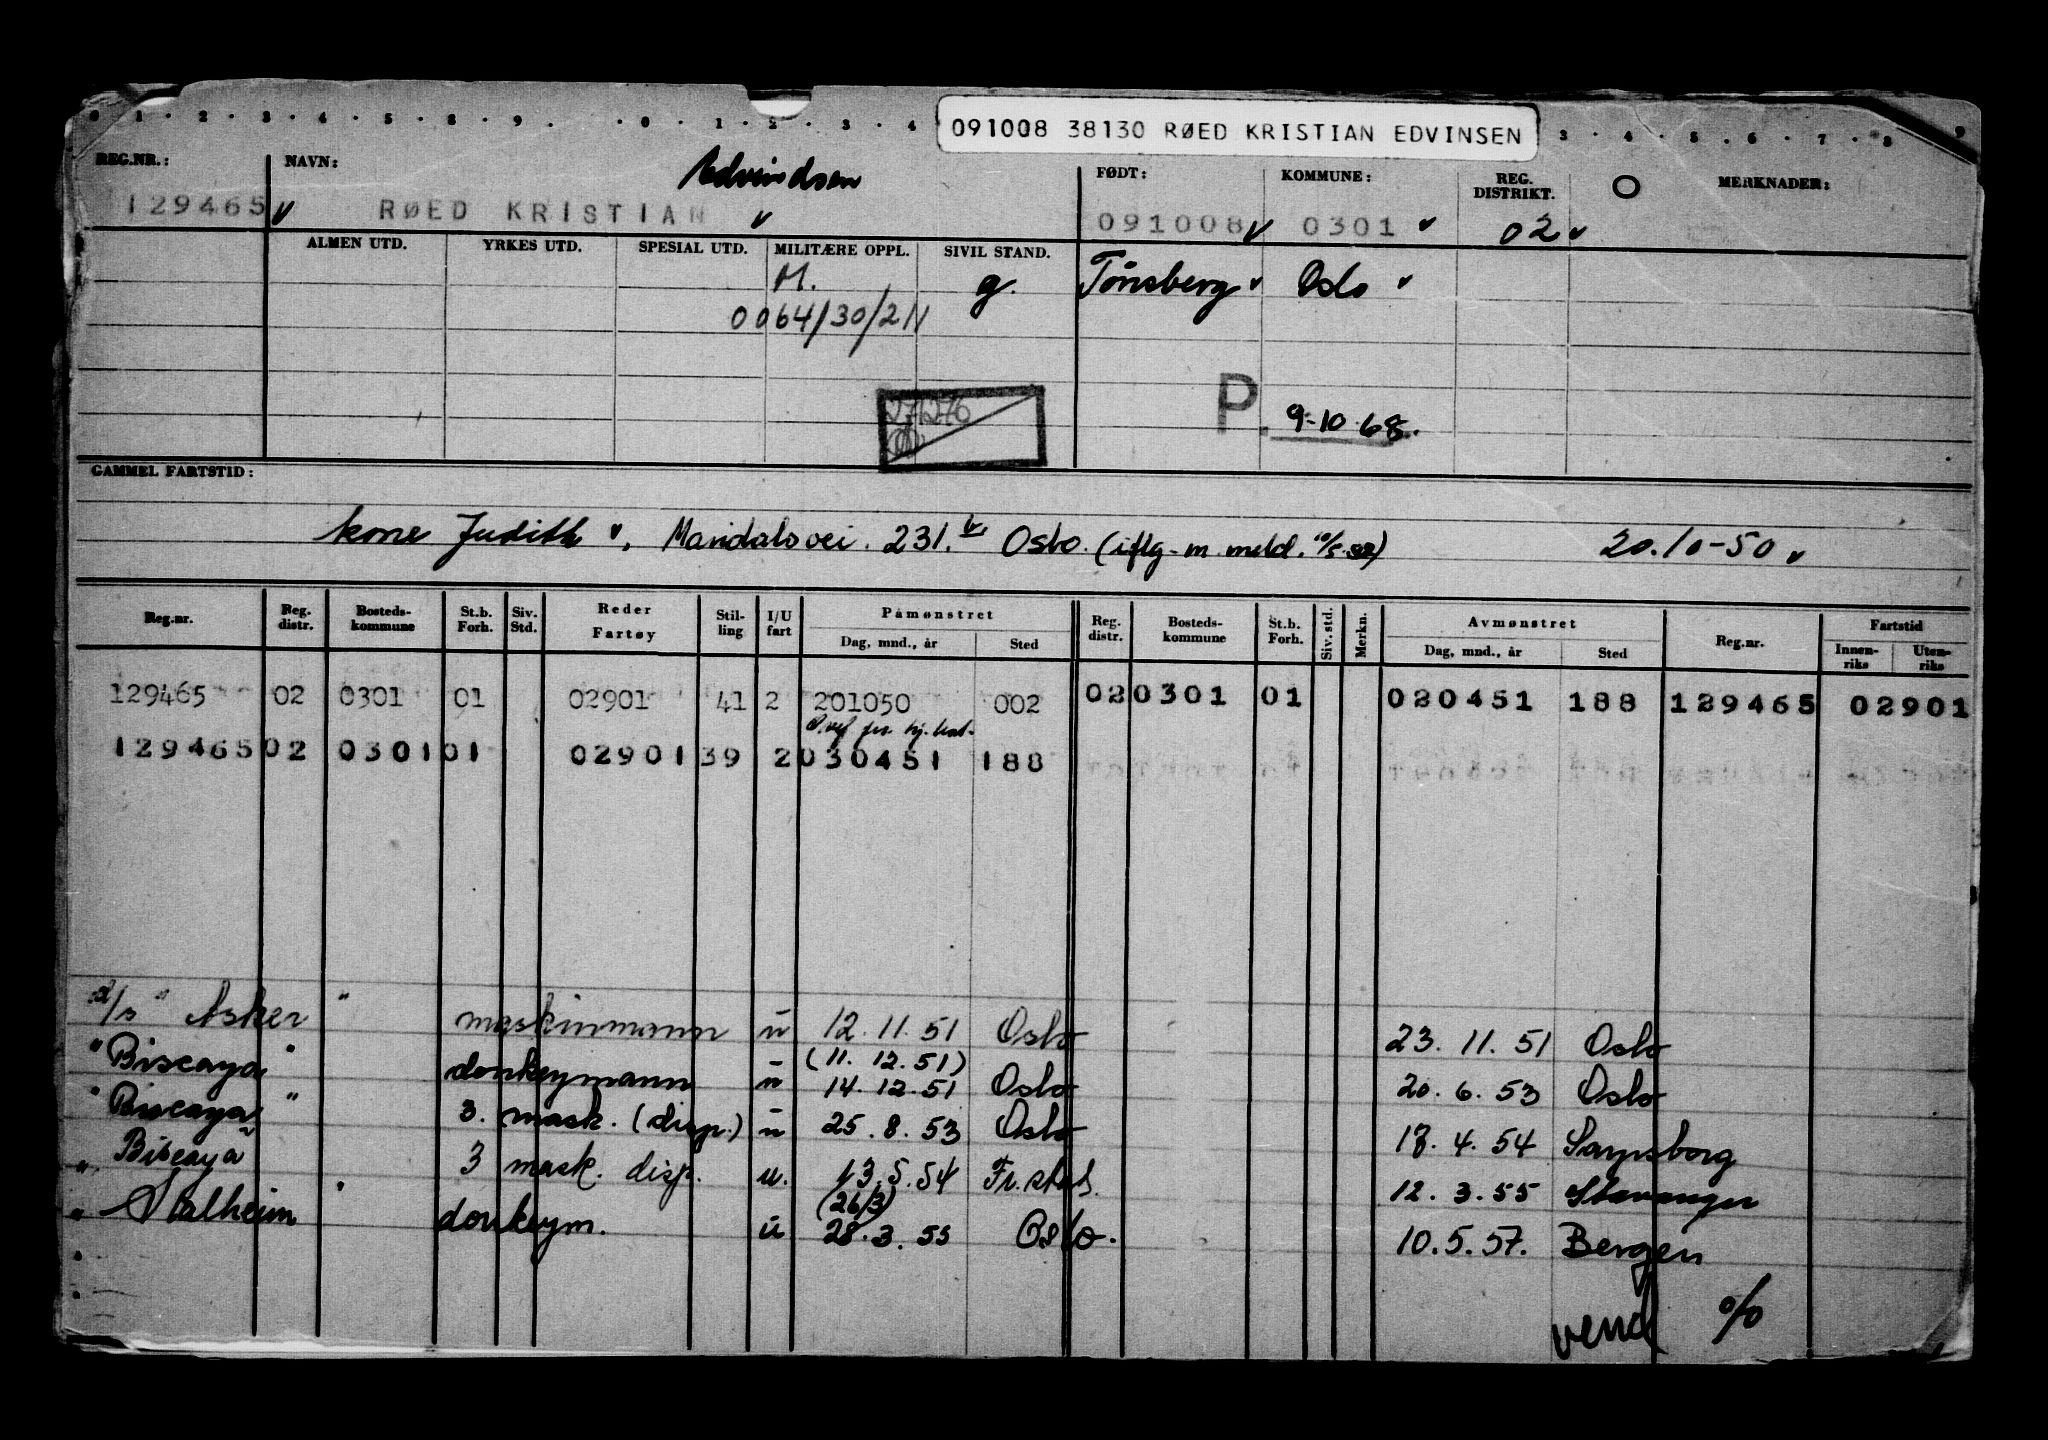 0 · 1 · 2 · 3 · 4 · 5 · 8 · 9 · · 0 · 1 · 2 · 3 · 4 3 · 4 · 5 · 6 · 7 · 8 9
091008 38130 RØED KRISTIAN EDVINSEN
REG.NR.: NAVN: FØDT: KOMMUNE: REG. DISTRIKT. O MERKNADER:
Edvindsen
129465 RØED KRISTIAN 091008 0301 02
ALMEN UTD. YRKES UTD. SPESIAL UTD. MILITÆRE OPPL. SIVIL STAND.
M. g. Tönsberg Oslo
0064/30/2N
271276
P. 9-10-68.
GAMMEL FARTSTID:
kone Judith, Maridalsvei. 231. Oslo. (iflg. m. meld. 20.10-50
Reg.nr. Reg. distr. Bosteds- kommune St.b. Forh. Siv. Std. Reder Fartøy Stil- ling I/U fart Påmønstret Reg. distr. Bosteds- kommune St.b. Forh. Siv. std. Merkn. Avmønstret Reg.nr. Fartstid
Dag, mnd., år Sted Dag, mnd., år Sted Innen- riks Uten- riks
129465 02 0301 01 02901 41 2 201050 002 02 0301 01 020451 188 129465 02901
129465 02 0301 01 02901 39 2 030451 188
d/s " Asker " maskinmann u 12.11.51 Oslo 23.11.51 Oslo
(11.12.51)
" Biscaya " donkeymann u 14.12.51 Oslo 20.6.53 Oslo
" Biscaya " 3. mask. (disp.) u 25.8.53 Oslo 18.4.54 Sarpsborg
" Biscaya 3 mask. disp. u. 13.5.54 Fr.stad. 12.3.55 Stavanger
(26/3)
" Stalheim " donkeym. u 28.3.55 Oslo. 10.5.57. Bergen
vend %